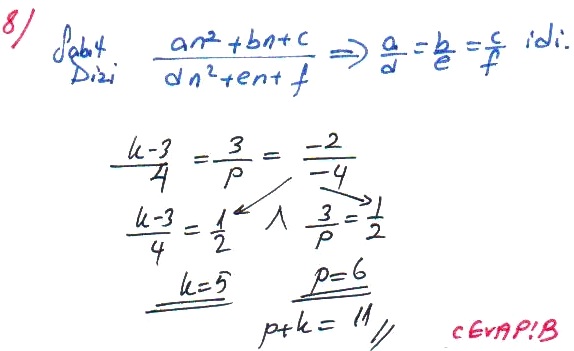 8)
Sabit Dizi (an²+bn+c)/(dn²+en+f) ⇒ a/d = b/e = c/f idi.
(k-3)/4 = 3/p = -2/-4
(k-3)/4 = 1/2 ∧ 3/p = 1/2
k=5 p=6
p+k = 11 //
CEVAP!B